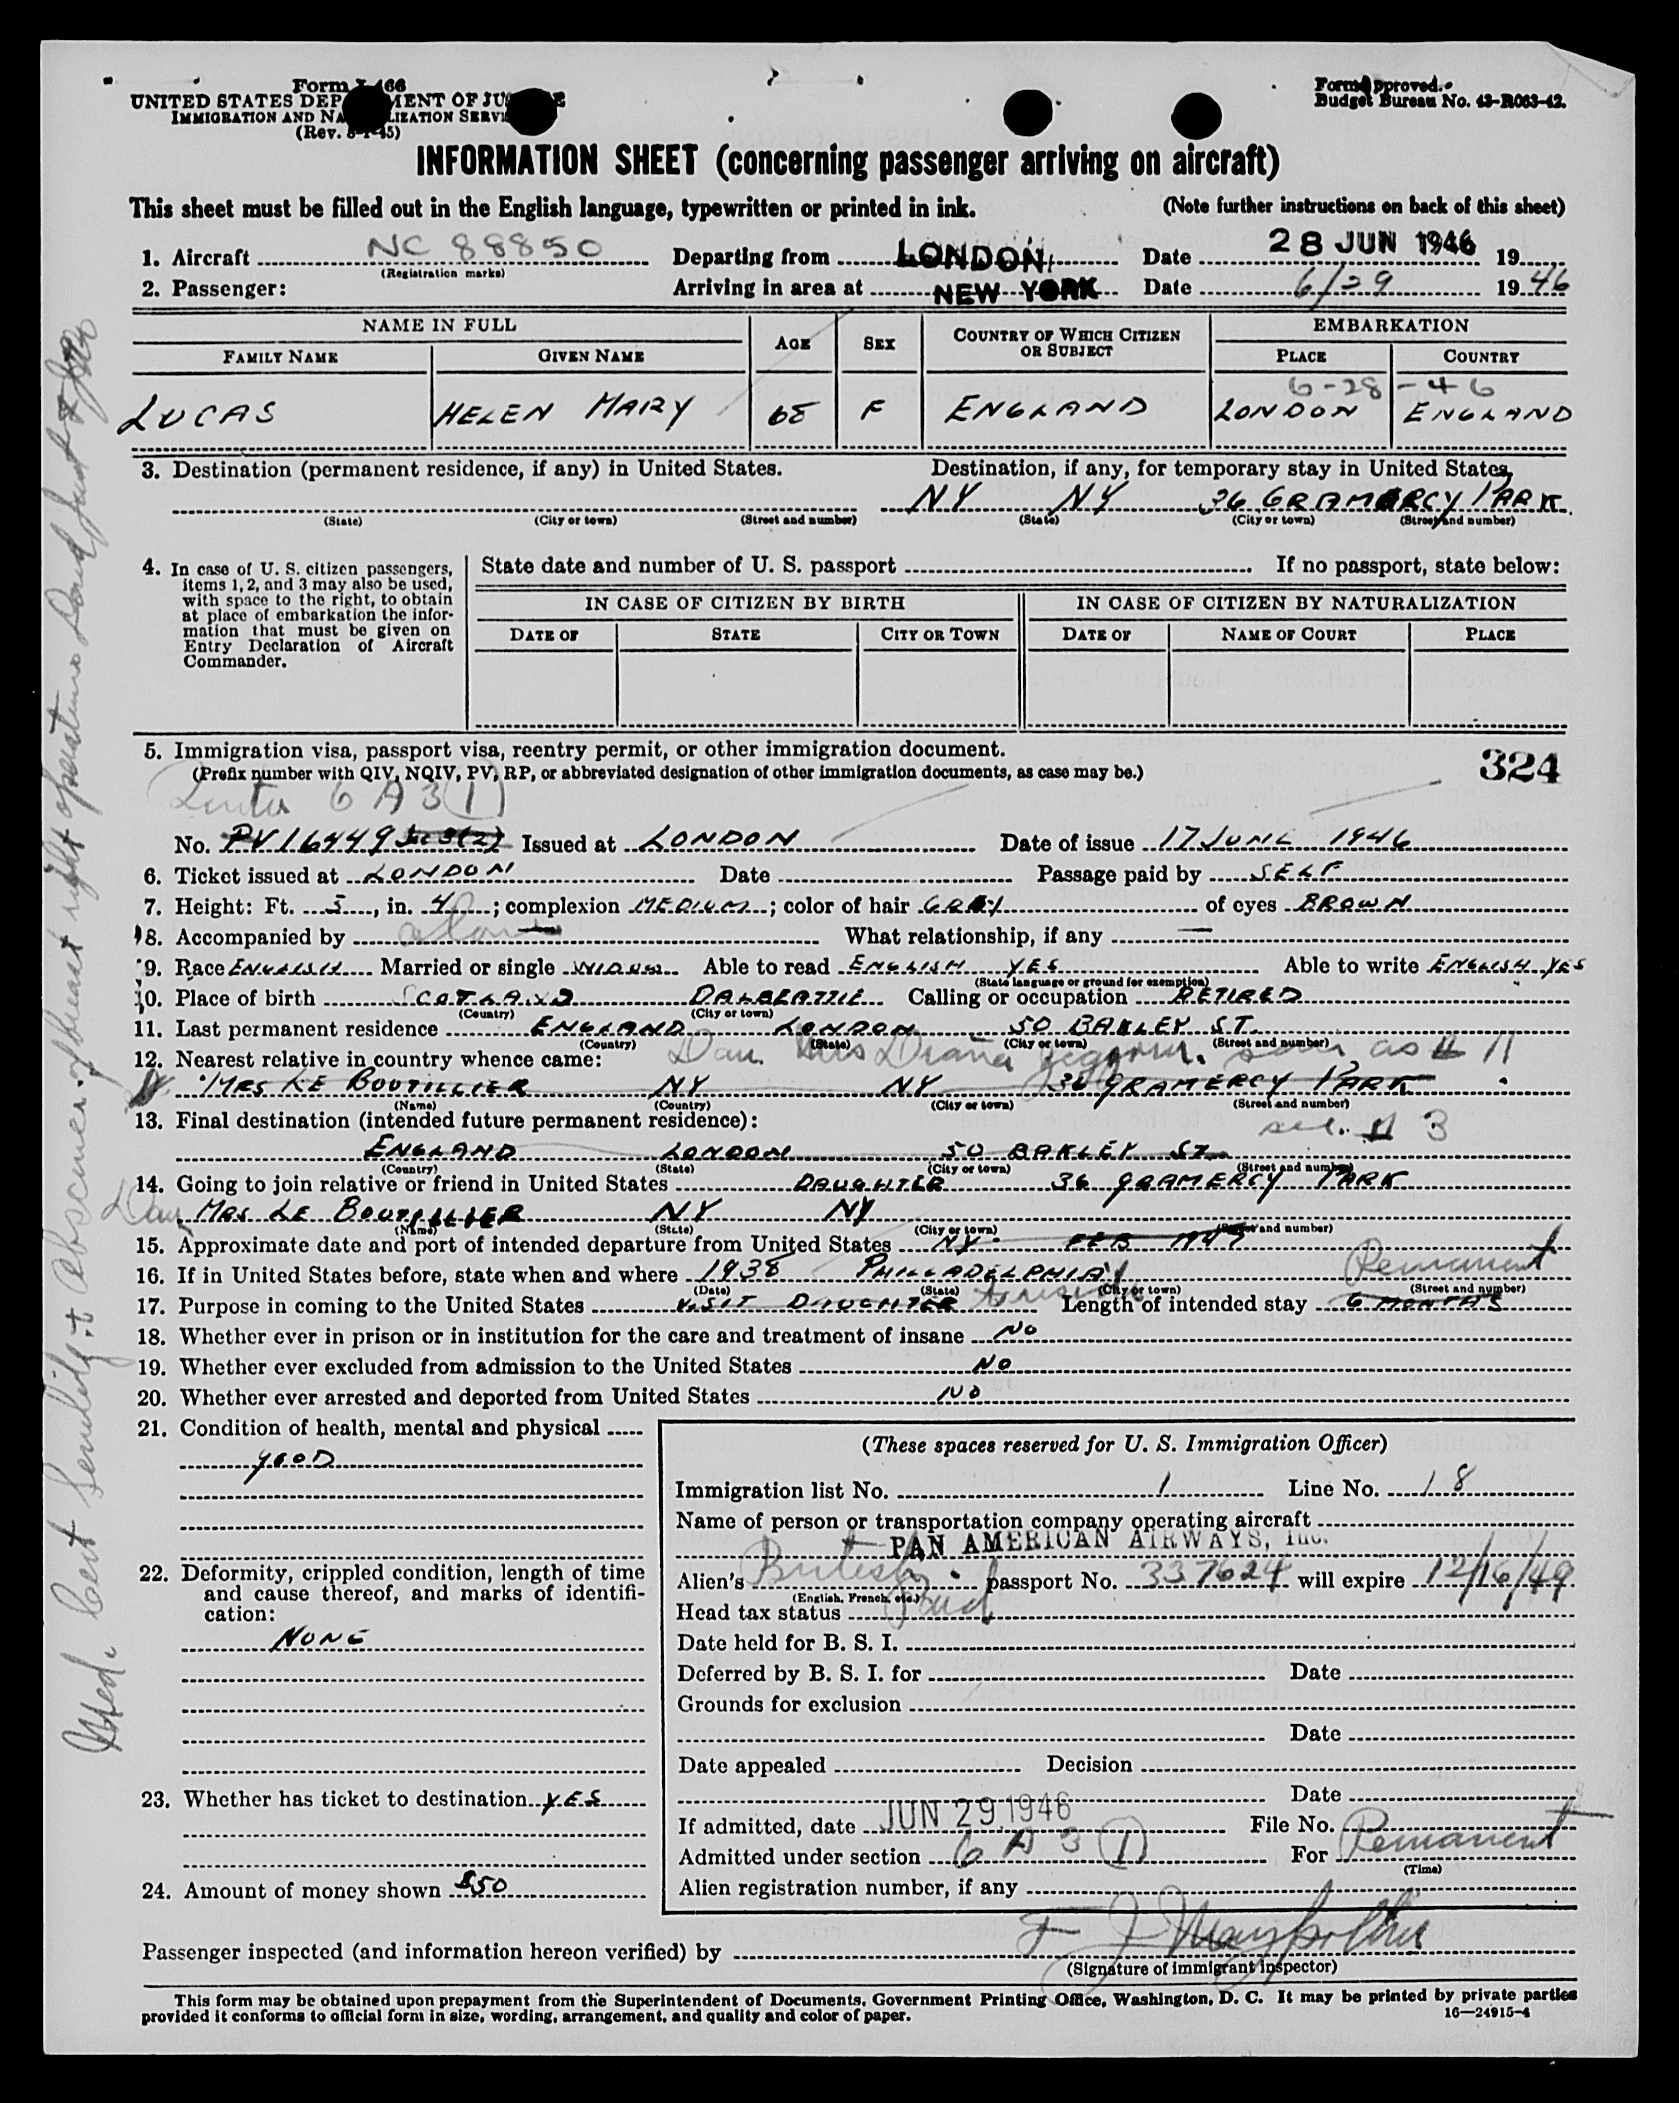 Form I-466
UNITED STATES DEPARTMENT OF JUSTICE
IMMIGRATION AND NATURALIZATION SERVICE
(Rev. 8-1-45)
Form approved.
Budget Bureau No. 43-R063-42.
INFORMATION SHEET (concerning passenger arriving on aircraft)
This sheet must be filled out in the English language, typewritten or printed in ink. (Note further instructions on back of this sheet)
1. Aircraft NC 88850 Departing from LONDON, Date 28 JUN 1946 19
(Registration marks)
2. Passenger: Arriving in area at NEW YORK Date 6/29 1946
NAME IN FULL AGE SEX COUNTRY OF WHICH CITIZEN OR SUBJECT EMBARKATION
FAMILY NAME GIVEN NAME PLACE COUNTRY
6-28-46
LUCAS HELEN MARY 68 F ENGLAND LONDON ENGLAND
3. Destination (permanent residence, if any) in United States. Destination, if any, for temporary stay in United States,
NY NY 36 GRAMERCY PARK
(State) (City or town) (Street and number) (State) (City or town) (Street and number)
4. In case of U. S. citizen passengers, items 1, 2, and 3 may also be used, with space to the right, to obtain at place of embarkation the information that must be given on Entry Declaration of Aircraft Commander.
State date and number of U. S. passport If no passport, state below:
IN CASE OF CITIZEN BY BIRTH IN CASE OF CITIZEN BY NATURALIZATION
DATE OF STATE CITY OR TOWN DATE OF NAME OF COURT PLACE
5. Immigration visa, passport visa, reentry permit, or other immigration document. 324
(Prefix number with QIV, NQIV, PV, RP, or abbreviated designation of other immigration documents, as case may be.)
6 A 3 (1)
No. PV 16449 Sec 3(2) Issued at LONDON Date of issue 17 JUNE 1946
6. Ticket issued at LONDON Date Passage paid by SELF
7. Height: Ft. 5, in. 4; complexion MEDIUM; color of hair GREY of eyes BROWN
8. Accompanied by alone What relationship, if any —
9. Race ENGLISH Married or single WIDOW Able to read ENGLISH YES Able to write ENGLISH YES
(State language or ground for exemption)
10. Place of birth SCOTLAND DALBEATTIE Calling or occupation RETIRED
(Country) (City or town)
11. Last permanent residence ENGLAND LONDON 50 BAKLEY ST.
(Country) (State) (City or town) (Street and number)
12. Nearest relative in country whence came: Dau. Mrs Diana same as # 11
MRS LE BOUTILLIER NY NY 36 GRAMERCY PARK
(Name) (Country) (City or town) (Street and number)
13. Final destination (intended future permanent residence): see # 3
ENGLAND LONDON 50 BAKLEY ST.
(Country) (State) (City or town) (Street and number)
14. Going to join relative or friend in United States DAUGHTER 36 GRAMERCY PARK
Dau. MRS LE BOUTILLIER NY NY
(Name) (State) (City or town) (Street and number)
15. Approximate date and port of intended departure from United States NY FEB 1947
16. If in United States before, state when and where 1938 PHILLADELPHIA Permanent
(Date) (State) (City or town) (Street and number)
17. Purpose in coming to the United States VISIT DAUGHTER to reside Length of intended stay 6 MONTHS
18. Whether ever in prison or in institution for the care and treatment of insane NO
19. Whether ever excluded from admission to the United States NO
20. Whether ever arrested and deported from United States NO
21. Condition of health, mental and physical
GOOD
22. Deformity, crippled condition, length of time and cause thereof, and marks of identification:
NONE
23. Whether has ticket to destination YES
24. Amount of money shown $50
(These spaces reserved for U. S. Immigration Officer)
Immigration list No. 1 Line No. 18
Name of person or transportation company operating aircraft
PAN AMERICAN AIRWAYS, Inc.
Alien's British passport No. 337624 will expire 12/16/49
(English, French, etc.)
Head tax status Paid
Date held for B. S. I.
Deferred by B. S. I. for Date
Grounds for exclusion
Date
Date appealed Decision
Date
If admitted, date JUN 29 1946 File No.
Admitted under section 6 A 3 (1) For Permanent
(Time)
Alien registration number, if any
Passenger inspected (and information hereon verified) by
(Signature of immigrant inspector)
This form may be obtained upon prepayment from the Superintendent of Documents, Government Printing Office, Washington, D. C. It may be printed by private parties
provided it conforms to official form in size, wording, arrangement, and quality and color of paper. 16—24915-4
Med. Cert Senility & Absence of breast right operative